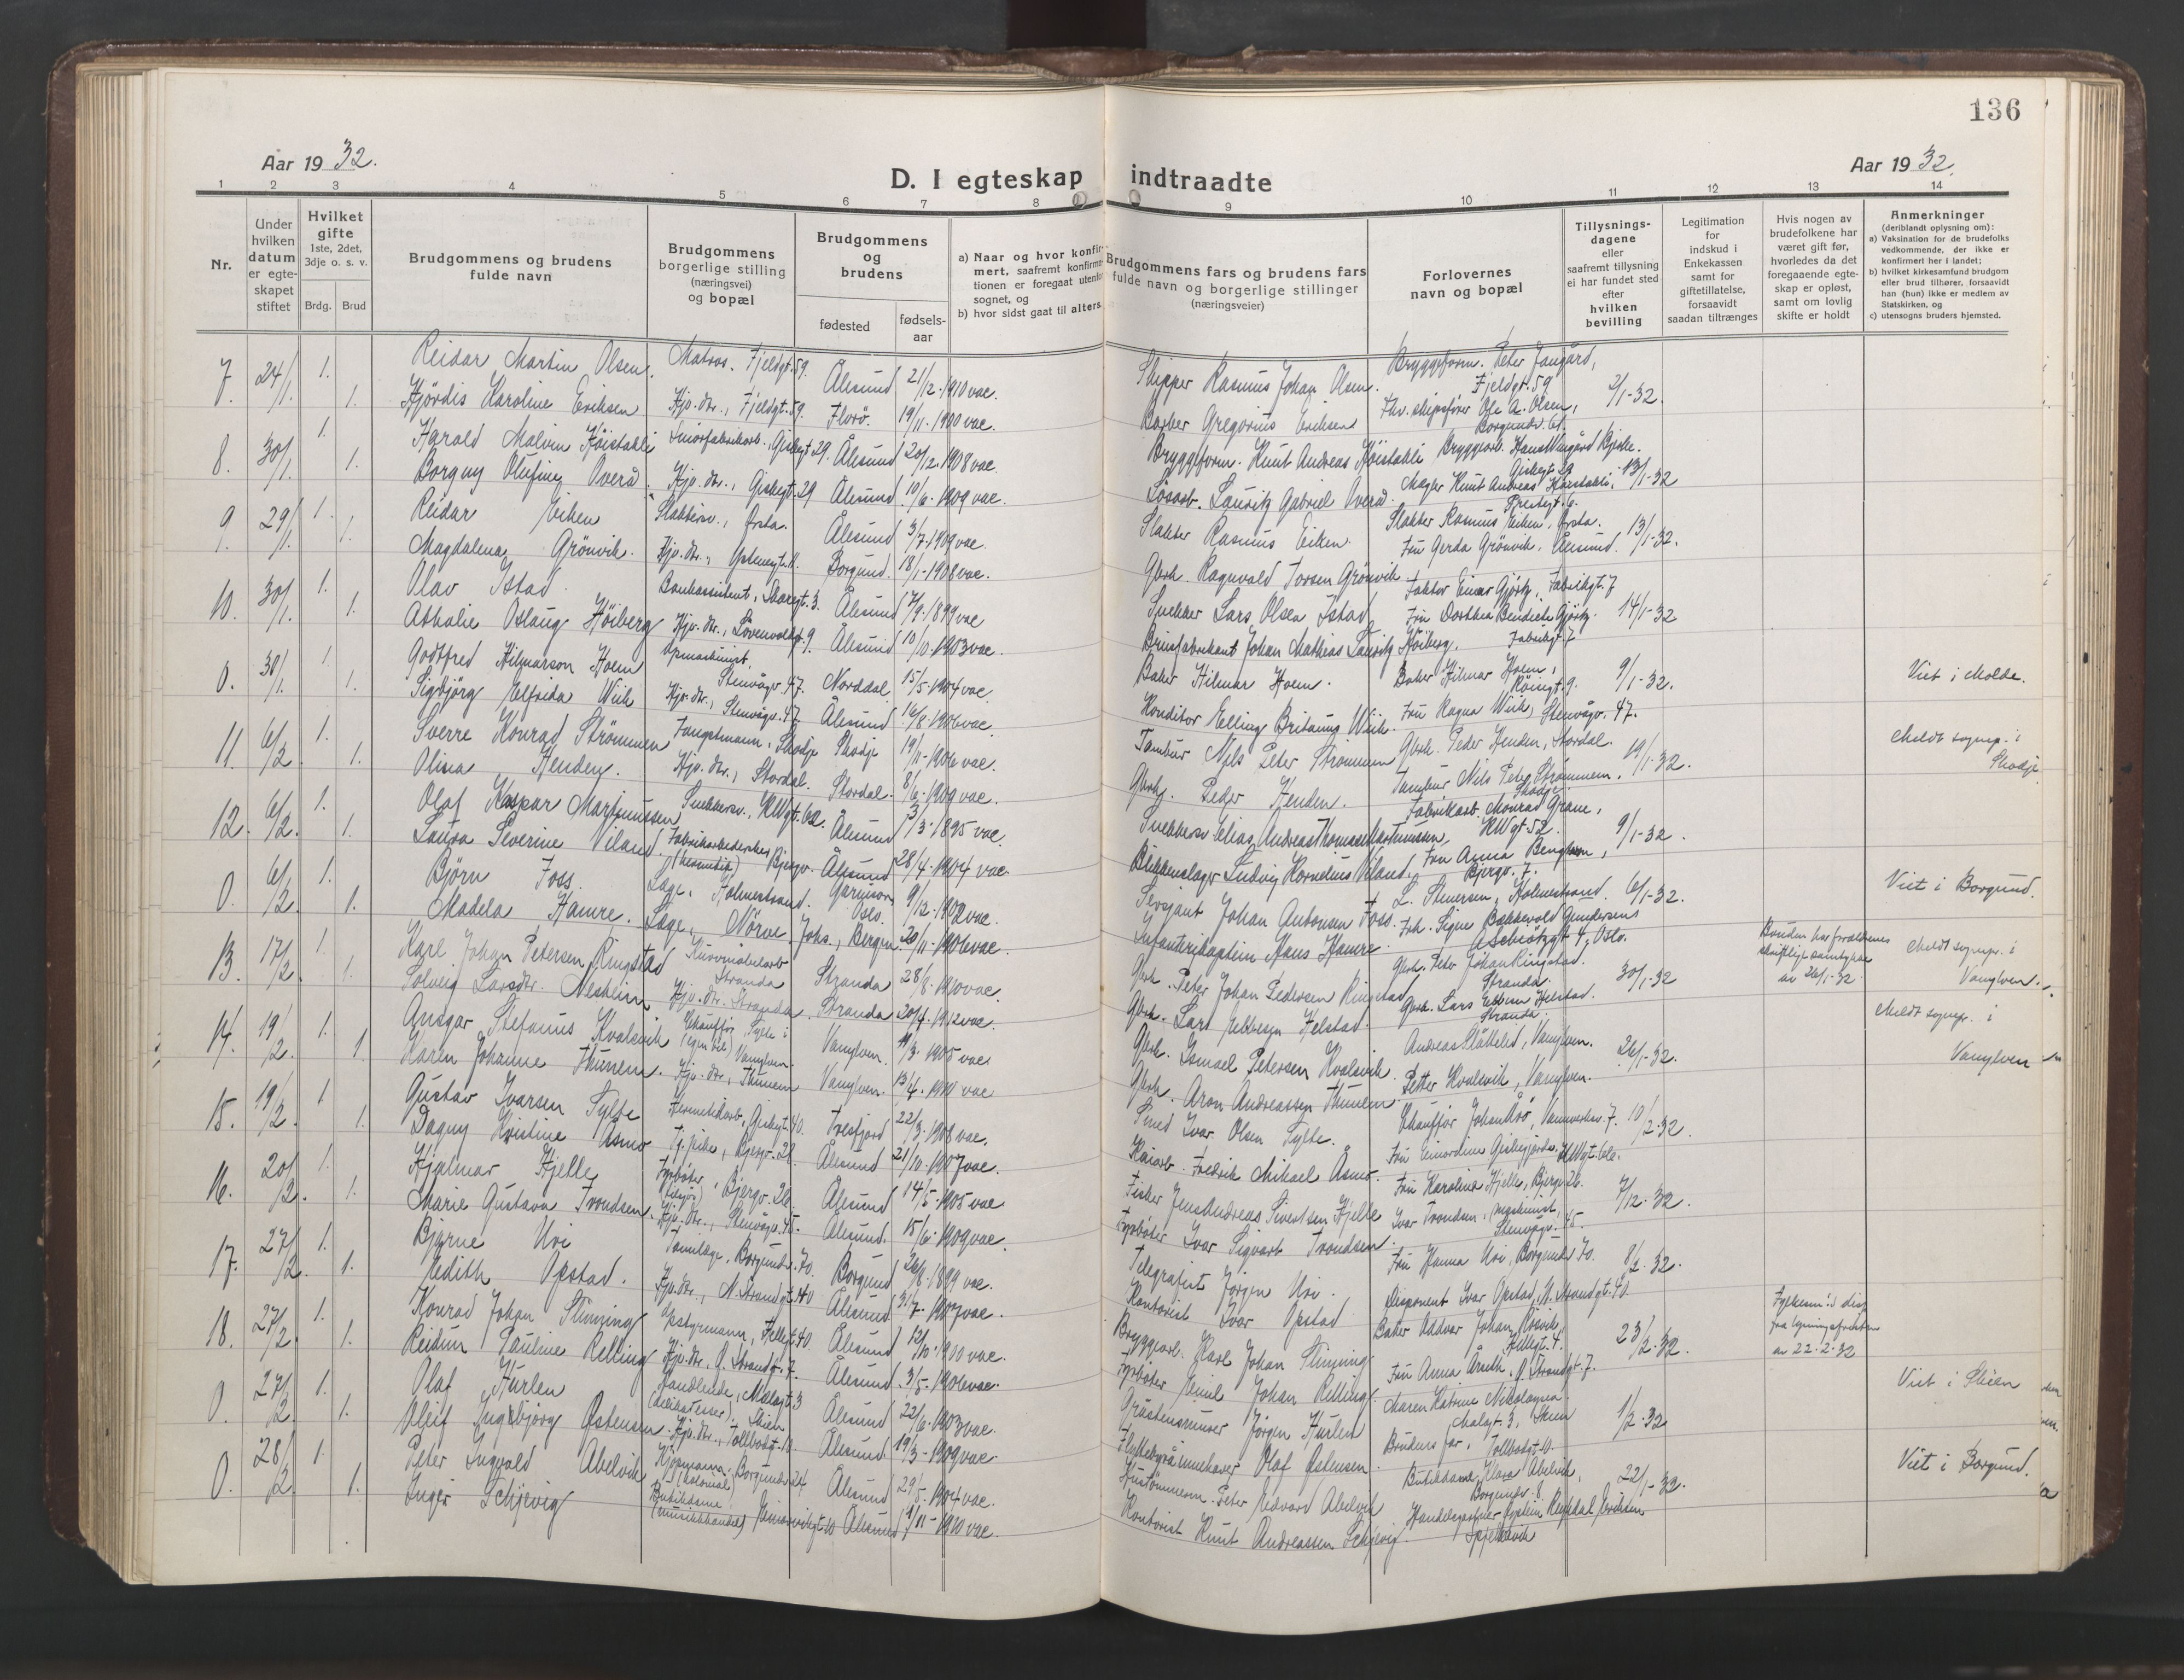 136
Aar 19 32.
D. I egteskap indtraadte
Aar 19 32.
1 2 3 4 5 6 7 8 9 10 11 12 13 14
Nr.
Under hvilken datum er egteskapet stiftet
Hvilket gifte 1ste, 2det, 3dje o. s. v.
Brdg. Brud
Brudgommens og brudens fulde navn
Brudgommens borgerlige stilling (næringsvei) og bopæl
Brudgommens og brudens
fødested
fødsels-aar
a) Naar og hvor konfir-
mert, saafremt konfirma-
tionen er foregaat utenfor
sognet, og
b) hvor sidst gaat til alters
Brudgommens fars og brudens fars
fulde navn og borgerlige stillinger
(næringsveier)
Forlovernes
navn og bopæl
Tillysnings-
dagene
eller
saafremt tillysning
ei har fundet sted
efter
hvilken
bevilling
Legitimation
for
indskud i
Enkekassen
samt for
giftetillatelse,
forsaavidt
saadan tiltrænges
Hvis nogen av
brudefolkene har
været gift før,
hvorledes da det
foregaaende egte-
skap er opløst,
samt om lovlig
skifte er holdt
Anmerkninger
(deriblandt oplysning om):
a) Vaksination for de brudefolks
vedkommende, der ikke er
konfirmert her i landet;
b) hvilket kirkesamfund brudgom
eller brud tilhører, forsaavidt
han (hun) ikke er medlem av
Statskirken, og
c) utensogns bruders hjemsted.
7. 24/1. 1. Reidar Martin Olsen. Matros. Fjeldgt. 59. Ålesund 21/12-1910 vac. Skipper Rasmus Johan Olsen. Bryggeform. Peter Jangård, Fjeldgt. 59.
1. Hjördis Karoline Eriksen Hjv. dtr., Fjeldgt. 59. Florö. 19/11-1900 vac. Barber Gregorius Eriksen Fhv. skipsfører Ole A. Olsen, Borgundv. 61. 2/1-32.
8. 30/1. 1. Harald Malvin Höistakli Smörfabrikarb., Giskegt 29. Ålesund 20/12-1908 vac. Bryggeform. Knut Andreas Höistakli Bryggearb. Hans Vingård Bjerke. Giskegt. 29.
1. Borgny Olufine Överå. Hjv. dtr., Giskegt. 29 Ålesund 10/6-1909 vac. Lösarb. Lauritz Gabriel Överå. Megler Knut Andreas Höistakli, 13/1-32
9. 29/1. 1. Reidar Eiken Slaktersv., Ørsta. Ålesund 3/7-1909 vac. Slakter Rasmus Eiken. Slakter Rasmus Eiken, Ørsta.
1. Magdalena Grönvik. Hjv. dtr., Borgund. 18/1-1908 vac. Gbrk. Ragnvald Torsen Grönvik Fru Gerda Grönvik, Ålesund. 13/1-32.
10. 30/1. 1. Olav Istad. Bankassistent, Skaregt. 3. Ålesund 7/9-1899 vac Snekker Lars Olsen Istad Faktor Einar Gjörtz, Fabrikgt. 7
1. Athalie Aslaug Höiberg Hjv. dtr., Lövenvoldgt. 9. Ålesund 10/10-1903 vac. Brusfabrikant Johan Mathias Lauritz Höiberg. Fru Dorthea Bendicte Gjörtz. Fabrikgt. 7 14/1-32
0. 30/1. 1. Godtfred Hilmarson Holm Stenvågv. 47. Norddal 15/5-1904 vac. Baker Hilmar Holm. Baker Hilmar Holm, 9/1-32. Viet i Molde.
1. Sigbjörg Elfrida Wiik Hjv. dtr., Stenvågv. 47. Ålesund 16/8-1906 vac. Konditor Elling Britanus Wiik. Fru Ragna Wiik, Stenvågv. 47.
11. 6/2. 1. Sverre Konrad Strömmen Fangstmann, Skodje Skodje 19/11-1906 vac. Tambur Nils Peter Strömmen Gbrk. Peder Henden, Stordal. 19/1-32. Meldt sognep. i Skodje
1. Olina Henden. Hjv. dtr., Stordal. Stordal. 8/6-1909 vac. Gbrkr. Peder Henden. Tambur Nils Peter Strömmen, Skodje.
12. 6/2. 1. Olaf Kaspar Martinussen Snekkersv., KWgt. 62. Ålesund 3/3-1895 vac. Snekkersv Elias Andreas Thomas Martinussen, Fabrikarb. Monrad Grane, KWgt. 52.
1. Laura Severine Viland. Fabrikarbeiderske (hermetik) Bjergv. Ålesund 28/4-1904 vac. Blikkenslager Ludvig Kornelius Viland. Fru Anna Bengtson, Bjergv. 7. 9/1-32.
0. 6/2. 1. Björn Foss. Læge, Holmestrand. Garnison Oslo. 9/12-1902 vac. Sersjant Johan Antonsen Foss. L. Stenersen, Holmestrand. 6/1-32. Viet i Borgund.
1. Madela Hamre. Læge, Nörve. Johs., Bergen. 20/11-1906 vac. Infanterikaptein Hans Hamre. Frk. Signe Bakkevold Gundersen Oslo.
13. 17/2. 1. Karl Johan Petersen Ringstad Kurvmöbelarb Stranda Stranda 28/8-1910 vac. Gbrk. Peter Johan Pedersen Ringstad Gbrk. Peter Johan Ringstad. Stranda. 30/1-32 Bruden har forældrenes skriftlige samtykke av 26/1-32 Meldt sognep. i Vanylven.
1. Solveig Larsdtr. Hjv. dtr. Stranda. Stranda 20/4-1912 vac. Gbrk. Lars Ebbesen Helstad. Gbrk. Lars Ebbesen Helstad. Stranda.
14. 19/2. 1. Ansgar Stefanus Kvalsvik Chauffør, Sylte i (egen bil) Vanylven. Vanylven. 11/3-1905 vac. Gbrk. Ismael Petersen Kvalsvik. Andreas Slåttelid, Vanylven. 26/1-32. Meldt sognep. i Vanylven
1. Karen Johanne Thunem. Hjv. dtr., Thunem Vanylven. 13/4-1911 vac Gbrk. Aron Andreassen Thunem. Petter Kvalsvik, Vanylven.
15. 19/2. 1. Gustav Ivarsen Sylte Hermetikarb., Giskegt. 40. Tresfjord 22/3-1908 vac. Smed Ivar Olsen Sylte. Chauffør Johan 7. 10/2-32.
1. Dagny Kristine Åsmo Tj. pike, Bjergv. 28. Ålesund 21/10-1907 vac. Kaiarb. Fredrik Mikael Åsmo. KWgt. 62.
16. 20/2. 1. Hjalmar Hjelle Fyrböter, (tilsjøs) Bjergv. 26. Ålesund 14/5-1905 vac Fisker Jens Andreas Sivertsen Hjelle Fru Karoline Hjelle, Bjergv. 26. 7/12-32.
1. Marie Gustava Trondsen. Hjv. dtr., Stenvågv. 45. Ålesund. 15/6-1909 vac. Fyrböter Ivar Sigvart Trondsen. Ivar Trondsen, maskinist, Stenvågv. 45.
17. 27/2. 1. Bjarne Uri Tannlæge, Borgundv. 70. Borgund 26/8-1899 vac. Telegrafist Jörgen Uri. Fru Hanna Uri, Borgundv 70. 8/2-32.
1. Edith Opstad. Hjv. dtr., N. Strandgt. 40 Ålesund 31/7-1907 vac. Kontorist Ivar Opstad Disponent Ivar Opstad, N. Strandgt. 40.
18. 27/2. 1. Konrad Johan Slinning Opstyrmann, Fjellgt. 40. Ålesund 12/10-1910 vac. Bryggearb. Karl Johan Slinning Baker Oddvar Johan Rösvik, Fjellgt. 4. 23/2-32. Fylkesm's disp fra lysningsfristen av 22-2-32
1. Reidun Pauline Relling Hjv. dtr. Ø. Strandgt. 7. Ålesund 3/5-1906 vac. Fyrböter Emil Johan Relling. Fru Anna Ø. Strandgt. 7.
0. 27/2. 1. Olaf Hurlen Handlende, (delikatesser), Skien Mælagt. 3 Ålesund 22/6-1903 vac. Gråstensmurer Jörgen Hurlen Maren Katrine Nikolaysen. Mælagt. 3, Skien 1/2-32 Viet i Skien
1. Oleif Ingebjörg Østensen. Hjv. dtr., Tollbodgt. 10. Ålesund 19/3-1909 vac. Flyttebyråinnehaver Olaf Østensen Brudens far, Tollbodgt. 10.
0. 28/2. 1. Peter Ingvald Abelvik Kjöpmann, (kolonial) Borgundv 24 Ålesund 29/5-1904 vac. Hustömmerm. Peter Edvard Abelvik Butikdame Klara Abelvik, Borgundv. 8. 22/1-32. Viet i Borgund.
1. Inger Schjevig Butikdame, (musikkhandel) Ålesund 1/11-1910 vac. Kontorist Knut Andreassen Schjevig. Spjelkavik